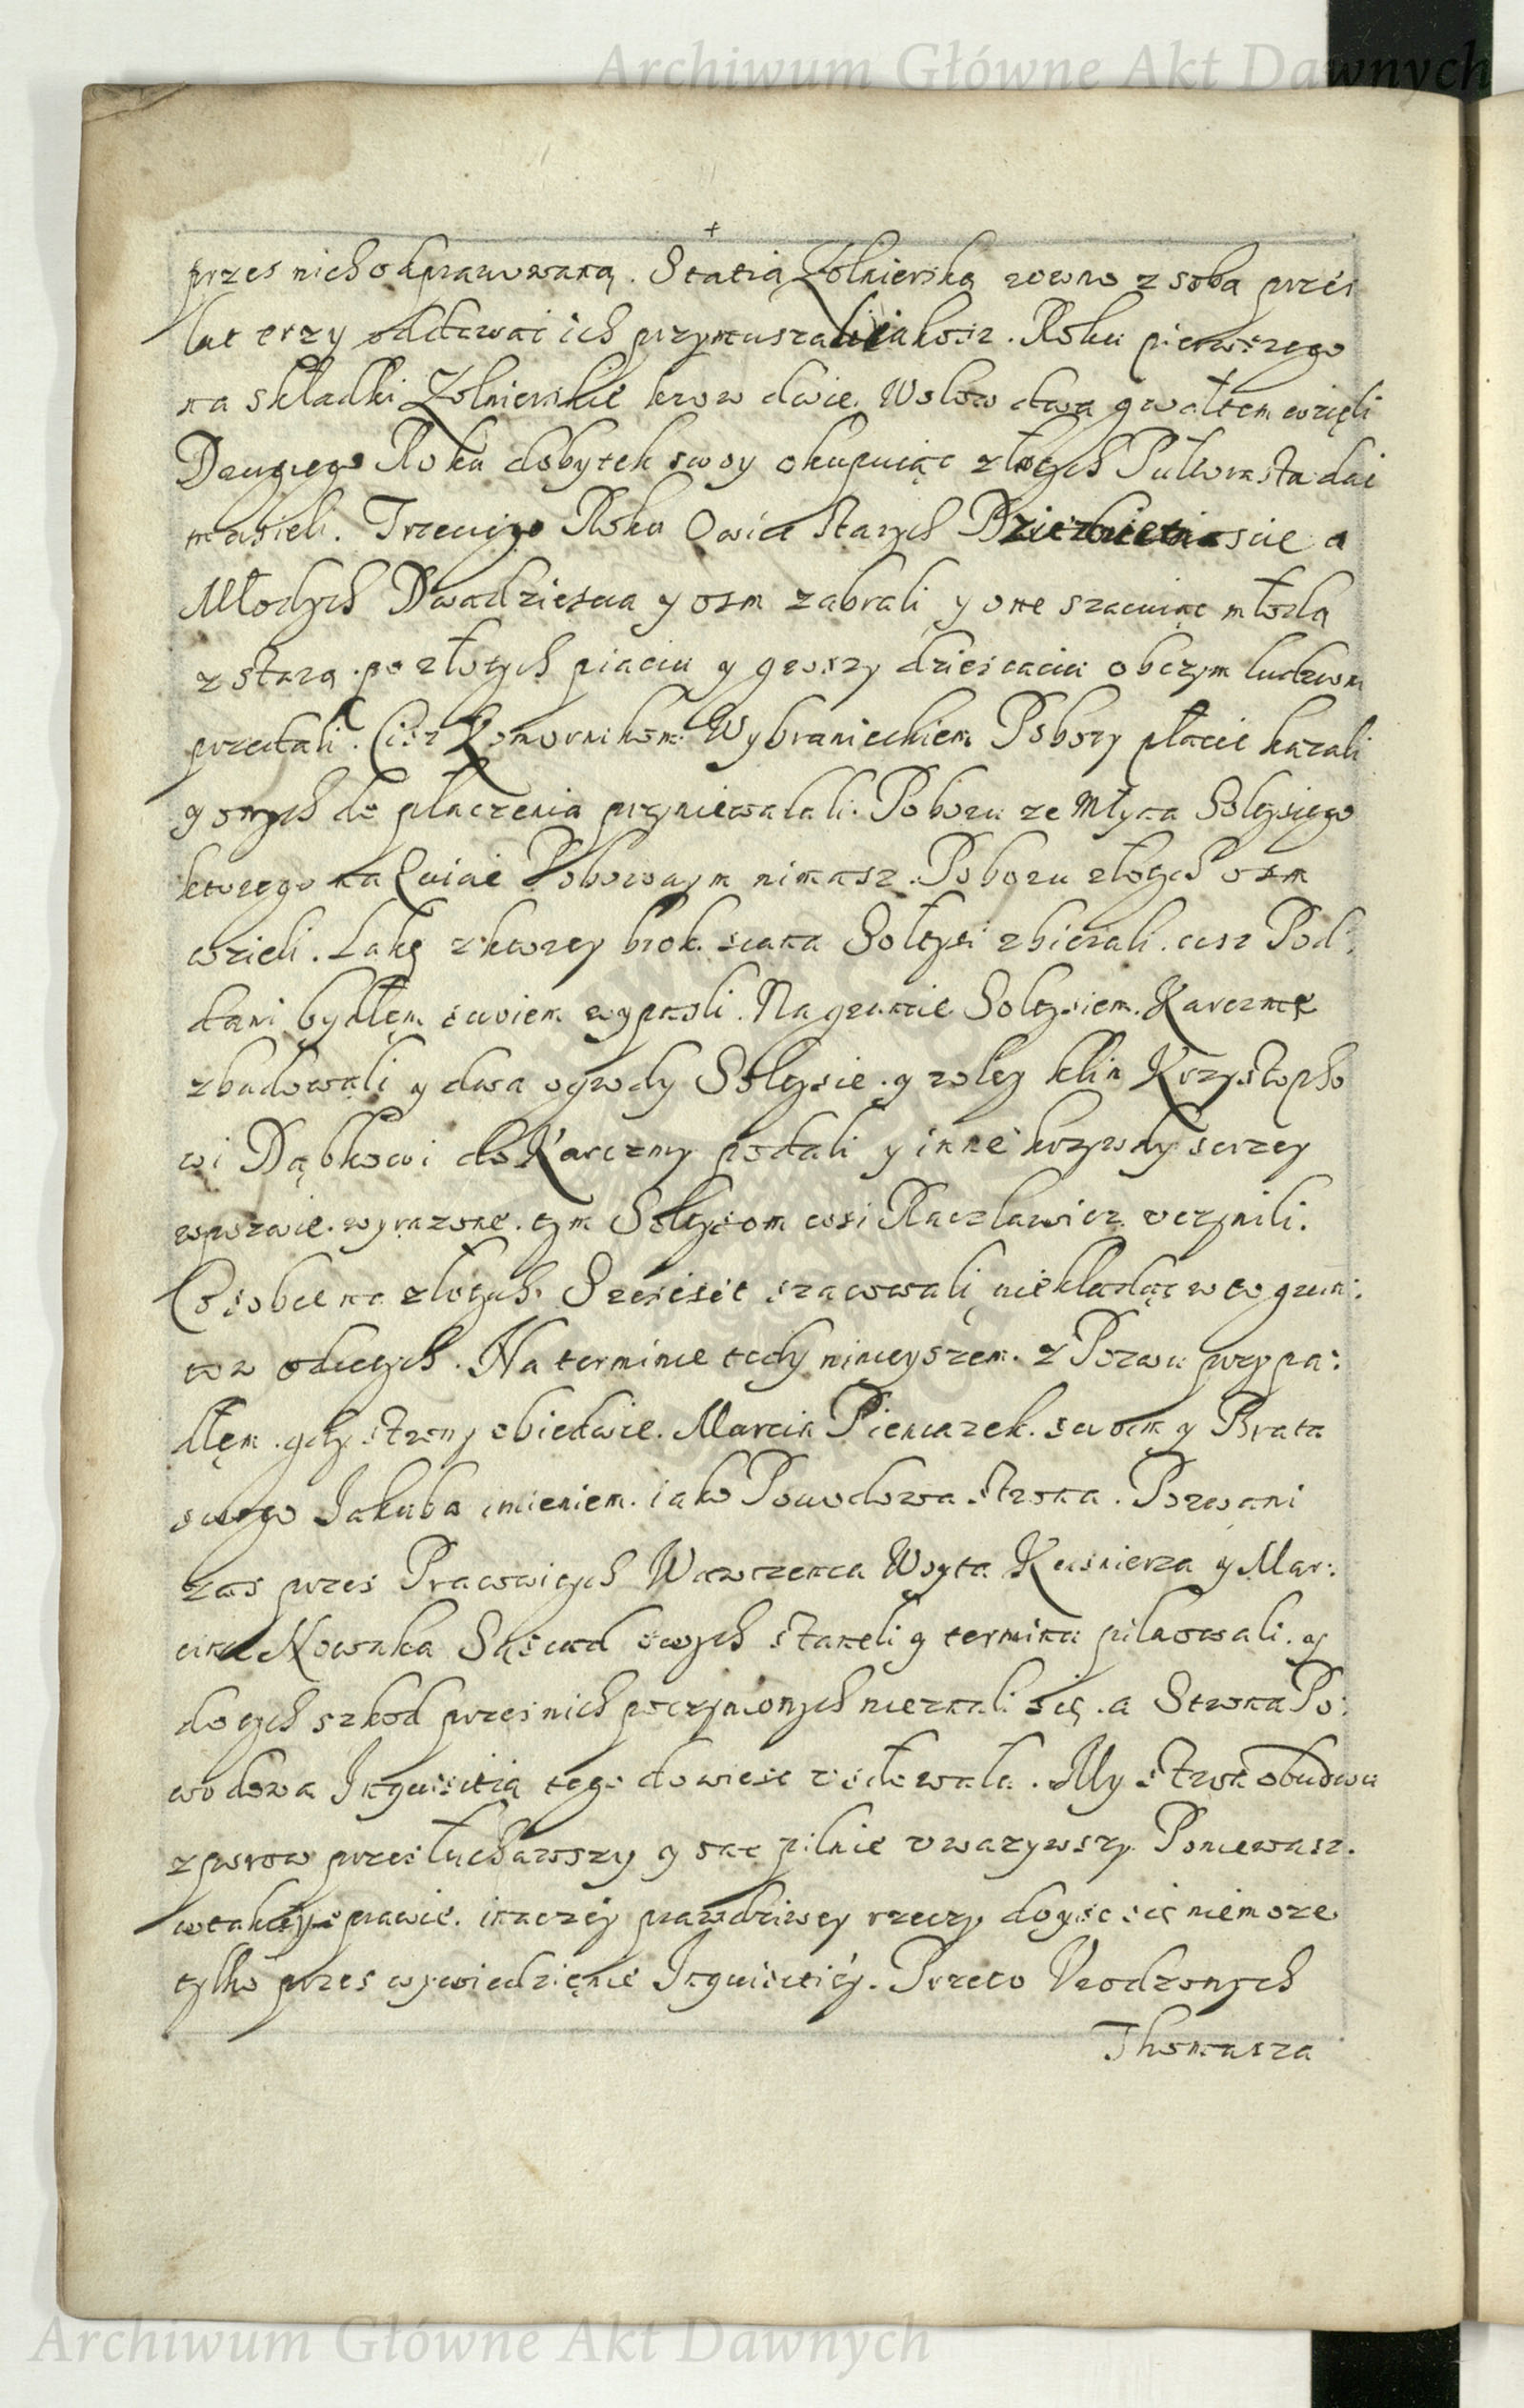 Archiwum Główne Akt Dawnych
przes nich odprawowaną. Statią Zołnierską rowno z sobą przes
lat trzy oddawac ich przymuszali iakosz. Roku pierwszego
na składki Zołnierskie krow dwie. Wołow dwa gwałtem wzięli
Drugiego Roku dobytek swoy okupuiąc złotych Pułtorasta dac
musieli. Trzeciego Roku Owiec starych scie a
Młodych Dwadziescia y osm zabrali y one szacuiąc młodą
z starą po złotych piąciu y groszy dziesiąciu obczym ludziom
przedali. Cisz Komornikom Wybranieckiem Pobory płacic kazali
y onych do płaczenia przyniewalali. Poboru ze Młyna Soltysiego
ktorego na Quiac Poborowym nimasz. Poboru złotych osm
wzieli. Łakę z ktorey brok siana Sołtysi zbierali. cisz Pod:
dani bydłem swoiem wypasli. Na gruncie Soltysiem. Karczmę
zbudowali y dwa ogrody Soltysie. y roley klin Krzysztopho
wi Dąbkowi do Karczmy podali y inne krzywdy serzey
wpozwie. wyrazone. tym Soltysom wsi Raczlawicz uczynili.
Co sobie na złotych Szescset szacowali niekładąc w to grun:
tow odietych. Na terminie tedy ninieyszem. z Pozwu przypa:
dłem. gdy strony obiedwie. Marcin Pieniazek. swoim y Brata
swego Jakuba imieniem. iako Powodowa Strona. Pozwani
zas przes Pracowitych Wawrzenca Woyta Kusnierza y Mar:
cina Nowaka Sąsiad swych staneli y terminu pilnowali. y
do tych szkod przes nich poczynionych nieznali się. a Strona Po:
wodowa Inquisitią tego dowiesc usiłowała. My Stron obudwu
zporow przesłuchawszy y one pilnie uwazywszy. Poniewasz.
wtakiey sprawie. inaczey prawdziwey rzeczy doysc się niemoze
tylko przes wywiedzienie Inquisitiey. Przeto Urodzonych
Thomasza
Archiwum Główne Akt Dawnych